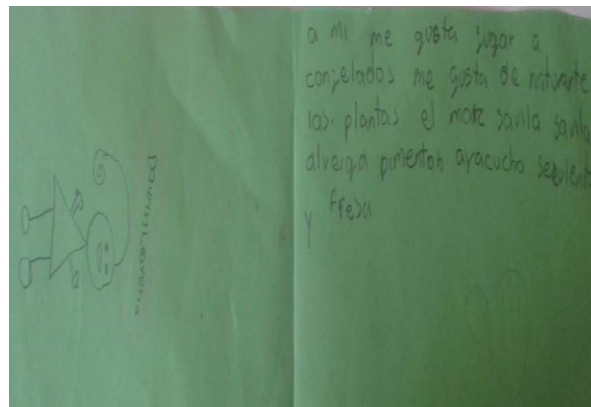 a mi me gusta jugar a
conjelados me gusta de naturarte
las plantas el maiz savila savila
alvergia pimenton ayacucho
y fresa